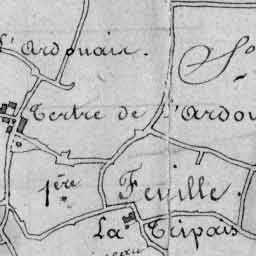 l'Ardouair.
Tertre de l'Ardou
1ère Feuille.
La Tripais